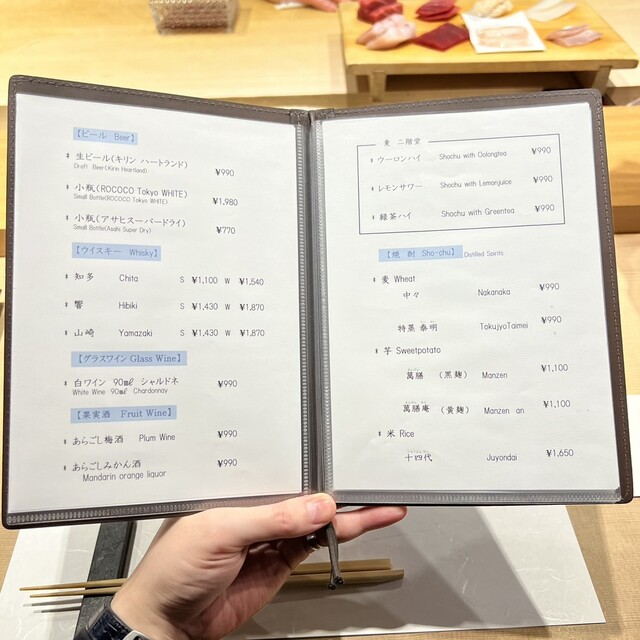 【ビール Beer】
* 生ビール(キリン ハートランド)
Draft Beer(Kirin Heartland) ¥990
* 小瓶(ROCOCO Tokyo WHITE)
Small Bottle(ROCOCO Tokyo WHITE) ¥1,980
* 小瓶(アサヒスーパードライ)
Small Bottle(Asahi Super Dry) ¥770
【ウイスキー Whisky】
* 知多 Chita S ¥1,100 W ¥1,540
* 響 Hibiki S ¥1,430 W ¥1,870
* 山崎 Yamazaki S ¥1,430 W ¥1,870
【グラスワイン Glass Wine】
* 白ワイン 90㎖ シャルドネ ¥990
White Wine 90㎖ Chardonnay
【果実酒 Fruit Wine】
* あらごし梅酒 Plum Wine ¥990
* あらごしみかん酒 ¥990
Mandarin orange liquor
麦 二階堂
* ウーロンハイ Shochu with Oolongtea ¥990
* レモンサワー Shochu with Lemonjuice ¥990
* 緑茶ハイ Shochu with Greentea ¥990
【焼 酎 Sho-chu】 Distilled Spirits
* 麦 Wheat
中々 Nakanaka ¥990
特蒸 泰明 TokujyoTaimei ¥990
* 芋 Sweetpotato
萬膳 (黒麹) Manzen ¥1,100
萬膳庵 (黄麹) Manzen an ¥1,100
* 米 Rice
十四代 Juyondai ¥1,650